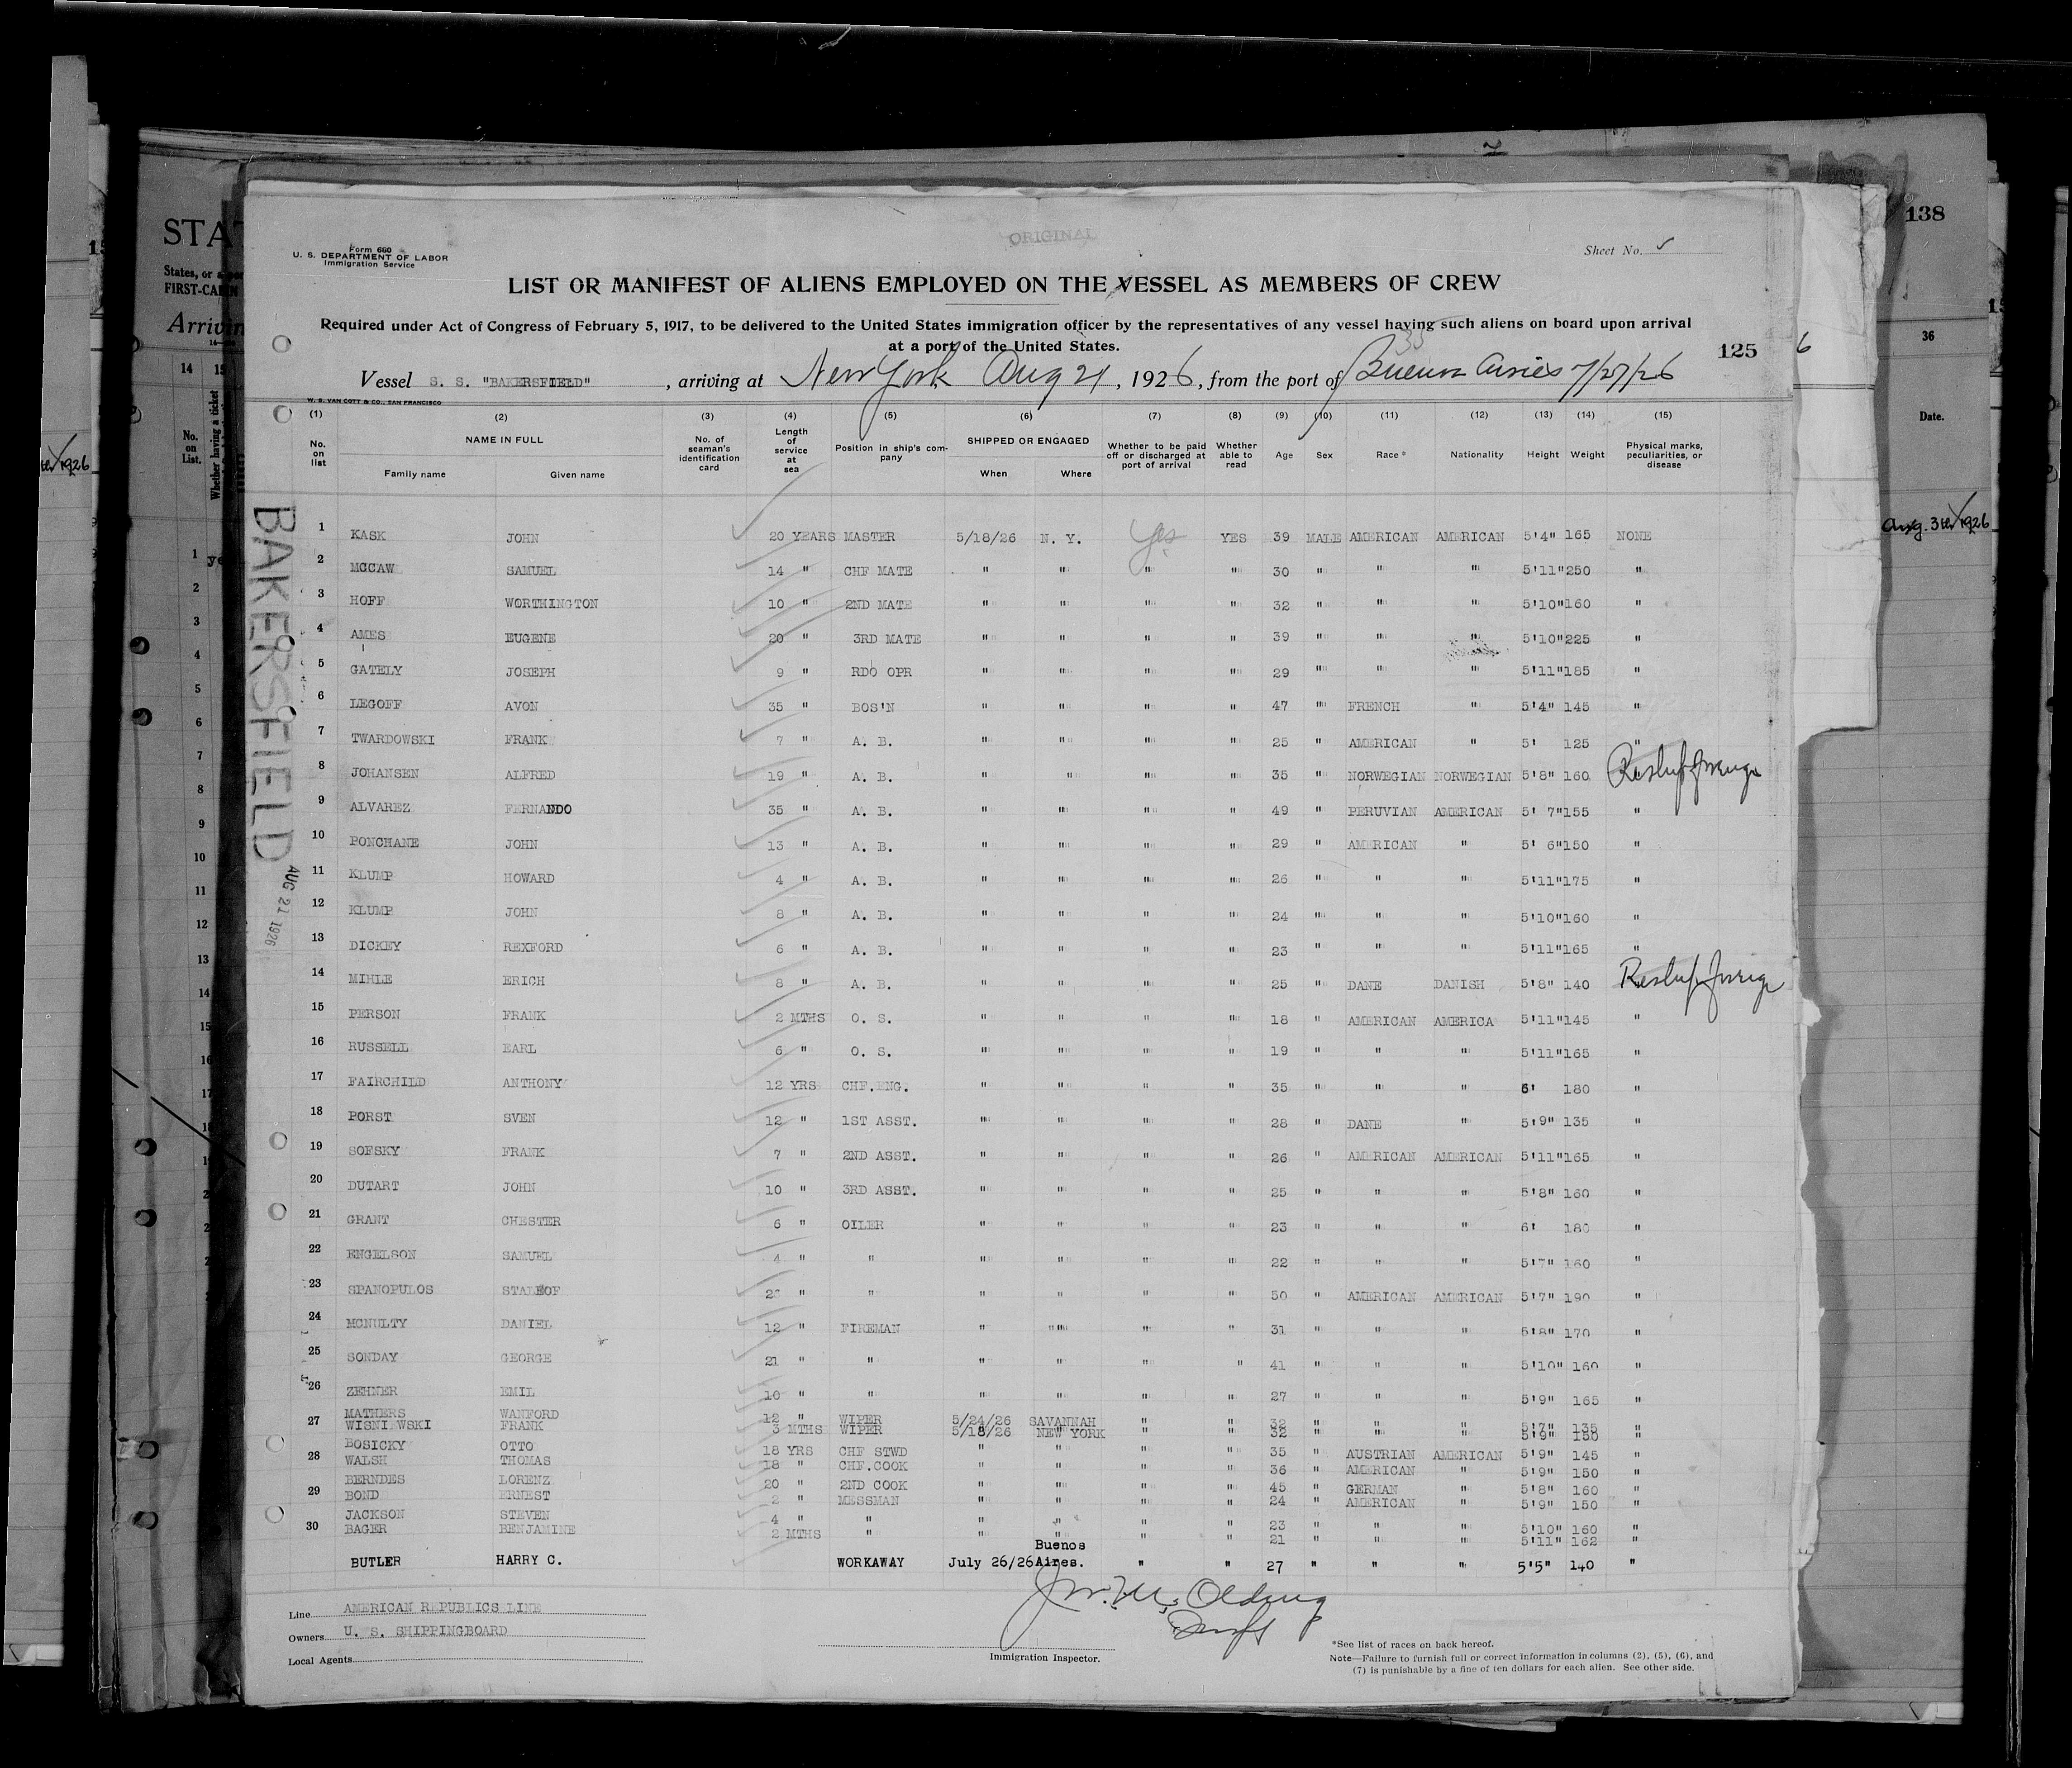 ORIGINAL
138
STA
Form 660
U. S. DEPARTMENT OF LABOR
Immigration Service
Sheet No.
States, or a
FIRST-CABIN
LIST OR MANIFEST OF ALIENS EMPLOYED ON THE VESSEL AS MEMBERS OF CREW
Arrivin
Required under Act of Congress of February 5, 1917, to be delivered to the United States immigration officer by the representatives of any vessel having such aliens on board upon arrival
at a port of the United States.
35
125
6
36
Vessel S. S. "BAKERSFIELD", arriving at New York Aug 21, 1926, from the port of Buenos Aires 7/27/26
W. S. VAN COTT & CO., SAN FRANCISCO
14 15
No. on List.
Whether having a ticket
Date.
Aug. 3 1926
(1) (2) (3) (4) (5) (6) (7) (8) (9) (10) (11) (12) (13) (14) (15)
No. on list
NAME IN FULL
Family name Given name
No. of seaman's identification card
Length of service at sea
Position in ship's company
SHIPPED OR ENGAGED
When Where
Whether to be paid off or discharged at port of arrival
Whether able to read
Age
Sex
Race*
Nationality
Height
Weight
Physical marks, peculiarities, or disease
BAKERSFIELD
AUG 21 1926
1 KASK JOHN 20 YEARS MASTER 5/18/26 N. Y. Yes YES 39 MALE AMERICAN AMERICAN 5'4" 165 NONE
2 MCCAW SAMUEL 14 " CHF MATE " " " " 30 " " " 5'11" 250 "
3 HOFF WORTHINGTON 10 " 2ND MATE " " " " 32 " " " 5'10" 160 "
4 AMES EUGENE 20 " 3RD MATE " " " " 39 " " " 5'10" 225 "
5 GATELY JOSEPH 9 " RDO OPR " " " " 29 " " " 5'11" 185 "
6 LEGOFF AVON 35 " BOS'N " " " " 47 " FRENCH " 5'4" 145 "
7 TWARDOWSKI FRANK 7 " A. B. " " " " 25 " AMERICAN " 5' 125 "
8 JOHANSEN ALFRED 19 " A. B. " " " " 35 " NORWEGIAN NORWEGIAN 5'8" 160
9 ALVAREZ FERNANDO 35 " A. B. " " " " 49 " PERUVIAN AMERICAN 5' 7" 155 "
10 PONCHANE JOHN 13 " A. B. " " " " 29 " AMERICAN " 5' 6" 150 "
11 KLUMP HOWARD 4 " A. B. " " " " 26 " " " 5'11" 175 "
12 KLUMP JOHN 8 " A. B. " " " " 24 " " " 5'10" 160 "
13 DICKEY REXFORD 6 " A. B. " " " " 23 " " " 5'11" 165 "
14 MIHLE ERICH 8 " A. B. " " " " 25 " DANE DANISH 5'8" 140
15 PERSON FRANK 2 MTHS O. S. " " " " 18 " AMERICAN AMERICA 5'11" 145 "
16 RUSSELL EARL 6 " O. S. " " " " 19 " " " 5'11" 165 "
17 FAIRCHILD ANTHONY 12 YRS CHF.ENG. " " " " 35 " " " 6' 180 "
18 PORST SVEN 12 " 1ST ASST. " " " " 28 " DANE " 5'9" 135 "
19 SOFSKY FRANK 7 " 2ND ASST. " " " " 26 " AMERICAN AMERICAN 5'11" 165 "
20 DUTART JOHN 10 " 3RD ASST. " " " " 25 " " " 5'8" 160 "
21 GRANT CHESTER 6 " OILER " " " " 23 " " " 6' 180 "
22 ENGELSON SAMUEL 4 " " " " " " 22 " " " 5'7" 160 "
23 SPANOPULOS " " " " " " 50 " AMERICAN AMERICAN 5'7" 190 "
24 MCNULTY DANIEL 12 " FIREMAN " " " " 31 " " " 5'8" 170 "
25 SONDAY GEORGE 21 " " " " " " 41 " " " 5'10" 160 "
26 ZEHNER EMIL 10 " " " " " " 27 " " " 5'9" 165 "
MATHERS WANFORD 12 " WIPER 5/24/26 SAVANNAH " " 32 " " " 5'7" 135 "
27 WISNI WSKI FRANK 3 MTHS WIPER 5/18/26 NEW YORK " " 32 " " " 5'9" 150 "
BOSICKY OTTO 18 YRS CHF STWD " " " " 35 " AUSTRIAN AMERICAN 5'9" 145 "
28 WALSH THOMAS 18 " CHF.COOK " " " " 36 " AMERICAN " 5'9" 150 "
BERNDES LORENZ 20 " 2ND COOK " " " " 45 " GERMAN " 5'8" 160 "
29 BOND ERNEST 2 " MESSMAN " " " " 24 " AMERICAN " 5'9" 150 "
JACKSON STEVEN 4 " " " " " " 23 " " " 5'10" 160 "
30 BAGER BENJAMINE 2 MTHS " " " " " 21 " " " 5'11" 162 "
BUTLER HARRY C. WORKAWAY July 26/26 Buenos Aires. " " 27 " " " 5'5" 140 "
Line AMERICAN REPUBLICS LINE
Owners U. S. SHIPPINGBOARD
Local Agents
Immigration Inspector.
*See list of races on back hereof.
Note—Failure to furnish full or correct information in columns (2), (5), (6), and
(7) is punishable by a fine of ten dollars for each alien. See other side.